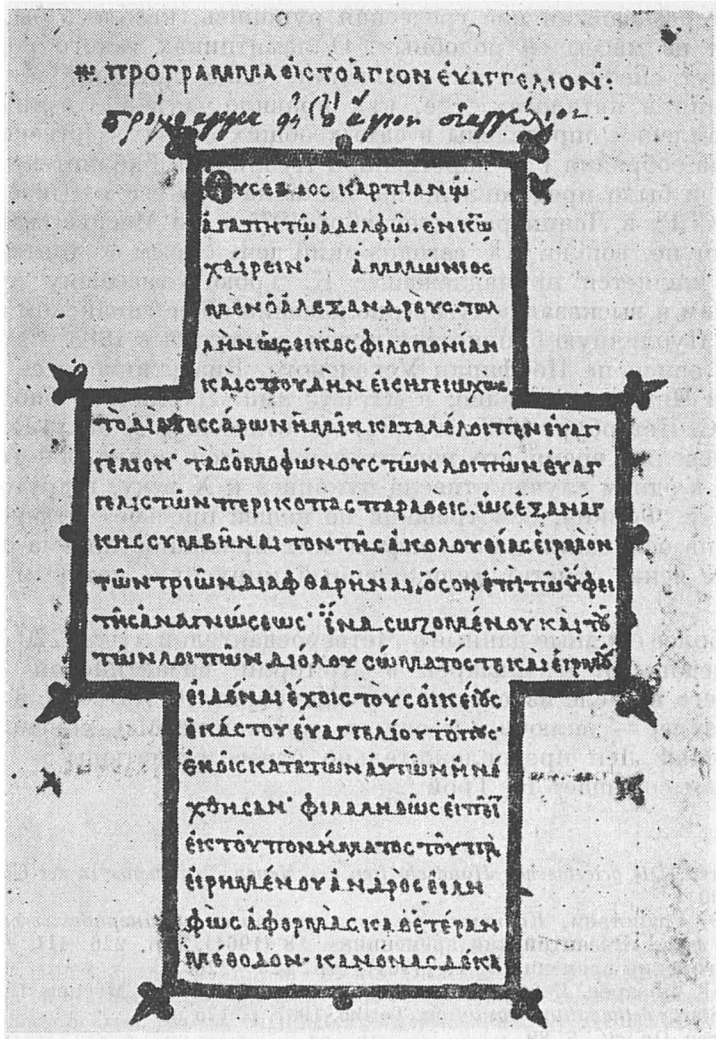 ※ ΠΡΟΓΡΑΜΜΑ ΕΙΣ ΤΟ ἍΓΙΟΝ ΕΥΑΓΓΕΛΙΟΝ:
ἐυσέβιος καρπιανῶ
ἀγαπητῶ ἀδελφῶ. ἐν κ̅ω̅
χαίρειν ἀμμώνιος
μὲν ὁ ἀλεξανδρεὺς. πολ
λὴν ὡς εικὸς φιλοπονίαν
καὶ σπουδὴν εἰσηγειωχὼς
τὸ διὰ τεσσάρων ἡμῖν καταλέλοιπεν ἐυαγ
γέλιον· τὰς ὁμοφώνους τῶν λοιπῶν ἐυαγ
γελιστῶν περικοπας παραθεὶς. ὡς ἐξ ἀναγ
κης συμβῆναι τὸν τῆς ἀκολουθίας εἱρμὸν
τῶν τριῶν διαφθαρῆναι. ὅσον ἐπὶ τῶ ὕφει
τῆς ἀναγνώσεως ἵνα σωζομένου καὶ τοῦ
τῶν λοιπῶν διόλου σώματός τε καὶ εἱρμοῦ
εἰδέναι ἔχοις τοὺς οἰκείους
ἑκάστου ἐυαγγελίου τόπους
ἐν οἷς κατὰ τῶν αυτῶν ἠνέ
χθησαν· φιλαλήθως ἐιπεῖν
ἐκ τοῦ πονήματος τοῦ προ
ειρημένου ἀνδρὸς ἐιλη
φὼς ἀφορμὰς. καθ ἑτέραν
μέθοδον· κανόνας δέκα